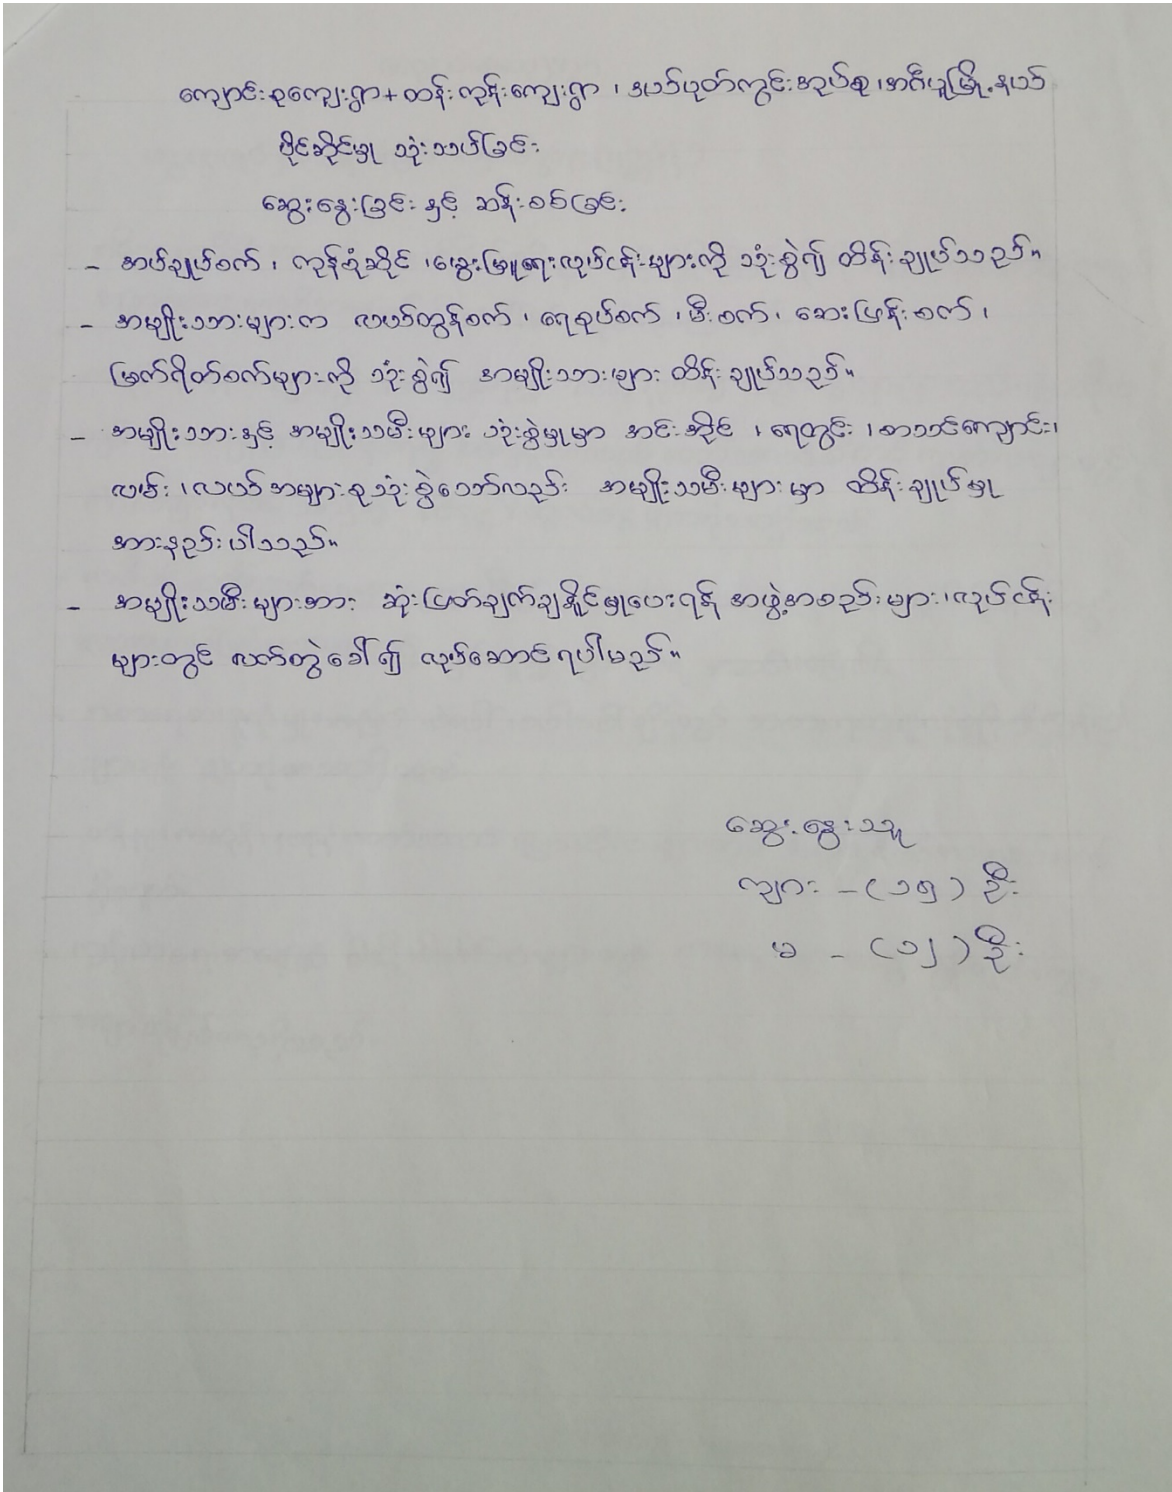 ကျောင်းစုကျေးရွာ + ထန်းကုန်းကျေးရွာ ၊ ဒယဉ်ပုတ်ကွင်းအုပ်စု ၊ အင်္ဂပူမြို့နယ်
ပိုင်ဆိုင်မှု သုံးသပ်ခြင်း
ဆွေးနွေးခြင်း နှင့် ဆန်းစစ်ခြင်း
- အပ်ချုပ်စက် ၊ ကုန်စုံဆိုင် ၊ မွေးမြူရေးလုပ်ငန်းများကို သုံးစွဲ၍ ထိန်းချုပ်သည်။
- အမျိုးသားများက လယ်ထွန်စက် ၊ ရေစုပ်စက် ၊ မီးစက် ၊ ဆေးဖြန်းစက် ၊
မြက်ရိတ်စက်များကို သုံးစွဲ၍ အမျိုးသားများ ထိန်းချုပ်သည်။
- အမျိုးသားနှင့် အမျိုးသမီးများ သုံးစွဲမှုမှာ အင်းအိုင် ၊ ရေတွင်း ၊ စာသင်ကျောင်း ၊
လမ်း ၊ လယ် အများစုသုံးစွဲသော်လည်း အမျိုးသမီးများမှာ ထိန်းချုပ်မှု
အားနည်းပါသည်။
- အမျိုးသမီးများအား ဆုံးဖြတ်ချက်ချနိုင်မှုပေးရန် အဖွဲ့အစည်းများ ၊ လုပ်ငန်း
များတွင် လက်တွဲခေါ်၍ လုပ်ဆောင်ရပါမည်။
ဆွေးနွေးသူ
ကျား - ( ၁၅ ) ဦး
မ - ( ၁၂ ) ဦး